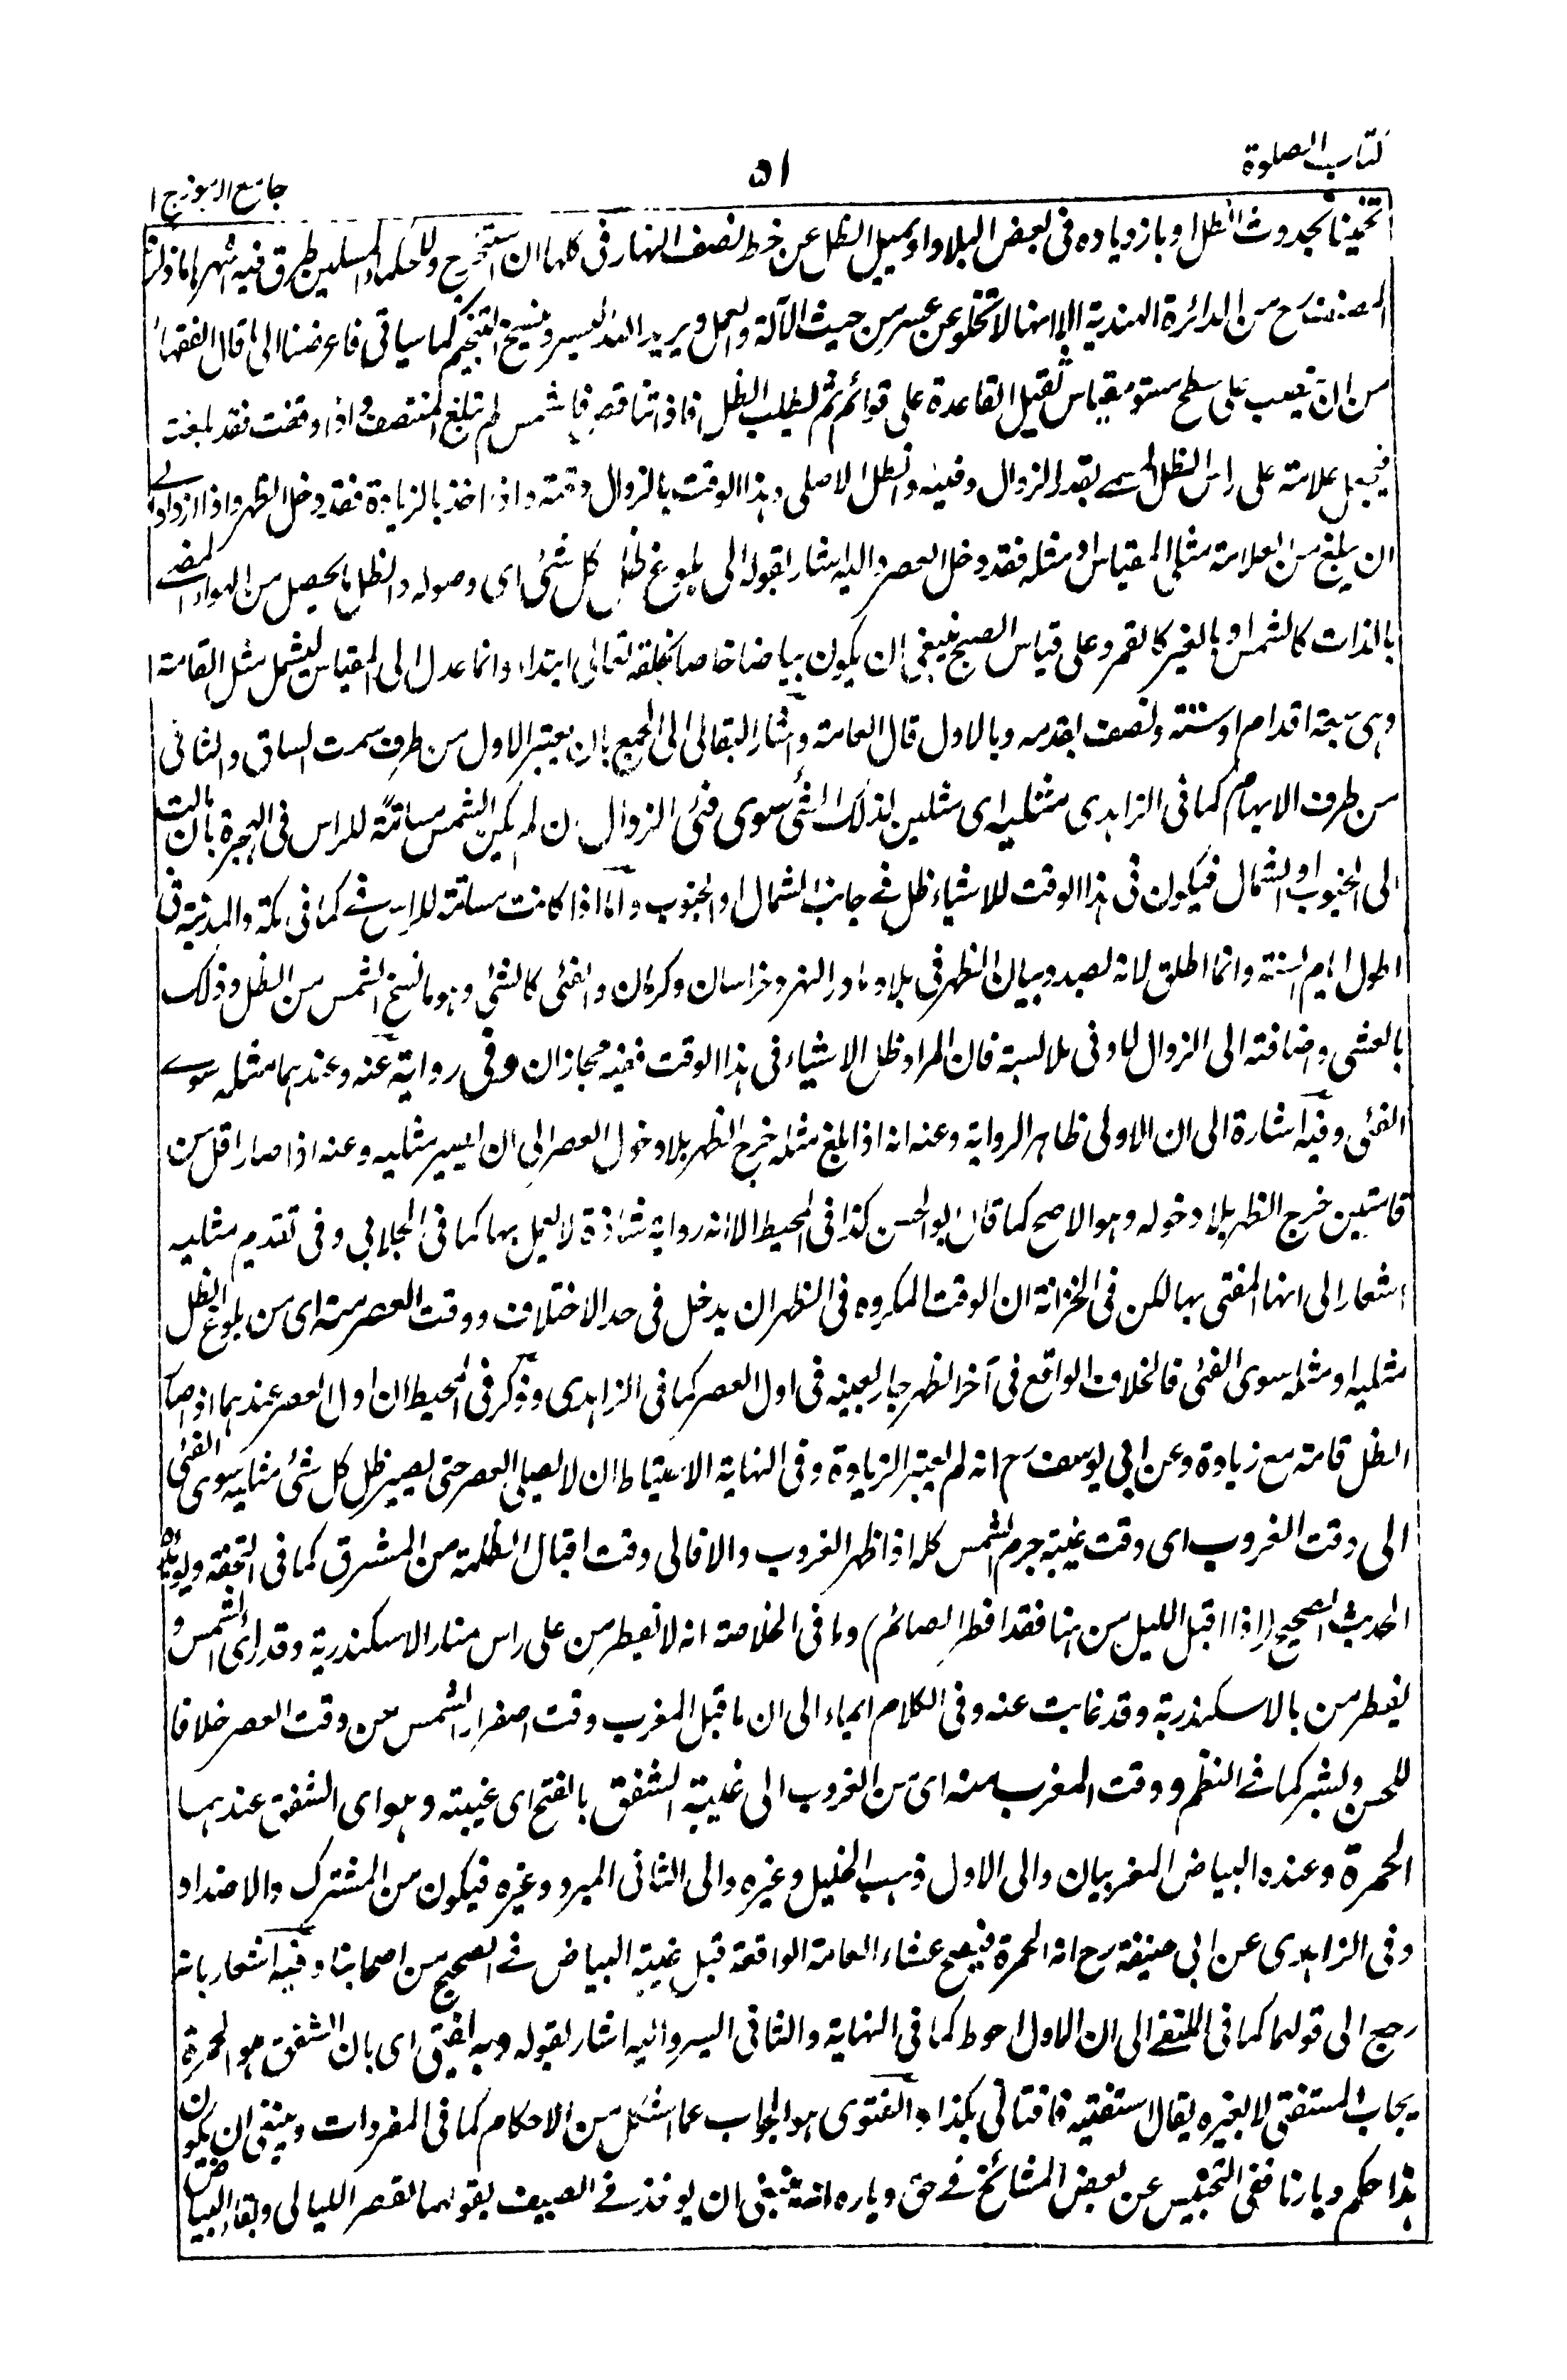 كتاب الصلوة
٥١
جامع الرموز ج ١
تخمينا بحدوث الظل او بازدياده فى بعض البلاد او بميل الظل عن خط نصف النهار فى كلها ان استخرج وللحكماء المسلمين طرق فيه اشهرها ما ذكر
المصنف رح من الدائرة الهندية الا انها لا تخلو عن عسر من حيث الآلة والعمل ويريد الله اليسر كما سياتى فاعرضنا الى ما قال الفقهاء
من ان ينصب على سطح مستو مقياس ثقيل القاعدة على قوائم ثم يطلب الظل فاذا تناقص فالشمس لم تبلغ المنتصف واذا وقفت فقد بلغت
فيجعل علامة على راس الظل المسمے بقدر الزوال وفيئه والظل الاصلى وهذا الوقت بالزوال واذا اخذ بالزيادة فقد دخل الظهر واذا ازداد الے
ان يبلغ من العلامة مثلى المقياس او مثله فقد دخل العصر واليه اشار بقوله الى بلوغ ظل كل شئ اى وصوله والظل ما يحصل من الهواء المضے
بالذات كالشمس او بالغير كالقمر وعلى قياس الصبح ينبغى ان يكون بياضا خاصا يخلقه تعالى ابتداء وانما عدل الى المقياس ليشمل مثل القامة
وهى سبعة اقدام او ستة ونصف بقدمه وبالاول قال العامة واشار البقالى الى الجمع بان يعتبر الاول من طرف سمت الساق والثانى
من طرف الابهام كما فى الزاهدى مثليه اى مثلين لذلك الشئ سوى فئ الزوال ان لم يكن الشمس مسامتة للراس فى الهجيرة بان مالت
الى الجنوب او الشمال فيكون فى هذا الوقت للاشياء ظل فے جانب الشمال او الجنوب واما اذا كانت مسامتة للراس فے كما فى مكة والمدينة فى
اطول ايام السنة وانما اطلق لانه بصدد بيان الظهر فى بلاد ماوراء النهر وخراسان وكرمان والفئ كالشئ وهو ما نسخ الشمس من الظل وذلك
بالعشى واضافته الى الزوال لادنى ملابسة فان المراد ظل الاشياء فى هذا الوقت ففيه مجازان وفى رواية عنه وعندهما مثله سوے
الفئ وفيه اشارة الى ان الاولى ظاهر الرواية وعنه انه اذا بلغ مثله خرج الظهر بلا دخول العصر الى ان يصير مثليه وعنه اذا صار اقل من
قامتين خرج الظهر بلا دخوله وهو الاصح كما قال ابو الحسن كذا فى المحيط الا انه رواية شاذة لا يعمل بها كما فى الجلابى وفى تقديم مثليه
اشعار الى انها المفتى بها لكن فى الخزانة ان الوقت المكروه فى الظهر ان يدخل فى حد الاختلاف ووقت العصر منه اى من بلوغ الظل
مثليه او مثله سوى الفئ فالخلاف الواقع فى آخر الظهر جار بعينه فى اول العصر كما فى الزاهدى وذكر فى المحيط ان اول العصر عندهما اذا صار
الظل قامة مع زيادة وعن ابى يوسف رح انه لم يعتبر الزيادة وفى النهاية الاحتياط ان لا يصلى العصر حتى يصير ظل كل شئ مثليه سوى الفئ
الى وقت الغروب اى وقت غيبة جرم الشمس كله اذا ظهر الغروب والا فالى وقت اقبال الظلمة من المشرق كما فى التحفة ويؤيده
الحديث الصحيح (اذا اقبل الليل من هنا فقد افطر الصائم) وما فى الخلاصة انه لا يفطر من على راس منار الاسكندرية وقد راى الشمس و
يفطر من بالاسكندرية وقد غابت عنه وفى الكلام ايماء الى ان ما قبل المغرب وقت اصفرار الشمس من وقت العصر خلافا
للحسن وبشر كما فے النظم ووقت المغرب منه اى من الغروب الى غيبة الشفق بالفتح اى غيبته وهو اى الشفق عندهما
الحمرة وعنده البياض المغربيان والى الاول ذهب الخليل وغيره والى الثانى المبرد وغيره فيكون من المشترك والاضداد
وفى الزاهدى عن ابى حنيفة رح انه الحمرة فيصح عشاء العامة الواقعة قبل غيبة البياض فے الصحيح من اصحابنا وفيه اشعار بانه
رجع الى قولهما كما فى الملتقے الى ان الاول احوط كما فى النهاية والثانى ايسر واليه اشار بقوله وبه يفتى اى بان الشفق هو الحمرة
يجاب المستفتى لا بغيره يقال استفتيه فافتانى بكذا والفتوى هو الجواب عما اشكل من الاحكام كما فى المفردات وينبغى ان يكون
هذا حكم ديارنا ففى التجنيس عن بعض المشائخ فے حق دياره انه ينبغى ان يوخذ فے الصيف بقولهما لقصر الليالى وبقاء البياض